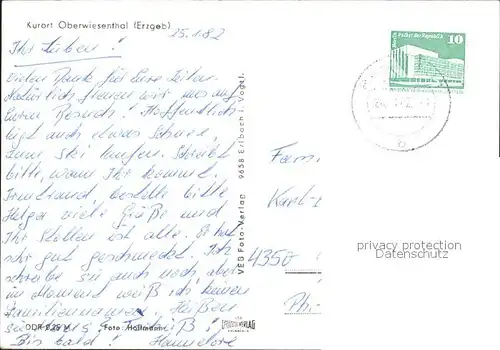 Kurort Oberwiesenthal (Erzgeb)
25.1.82
Ihr Lieben!
Vielen Dank für Eure Zeilen.
Natürlich freuen wir uns auf
Euren Besuch! Hoffentlich
liegt auch etwas Schnee,
zum Ski laufen. Schreibt
bitte, wann Ihr kommt.
Irmtraud, bestelle bitte
Helga viele Grüße und
Ihr Stollen ist alle. Er hat
sehr gut geschmeckt. Ich
schreibe sie auch noch, aber
im Moment weiß ich keinen
Familiennamen. Heißen
sie
Bis bald! Hannelore
DDR 0,25 M Foto: Hoffmann
VEB Foto-Verlag 9658 Erlbach i. Vogtl.
FOTOVERLAG
ERLBACH
Berlin Palast der Republik
10
Fam.
Karl-
4350
Ph.-
privacy protection
Datenschutz